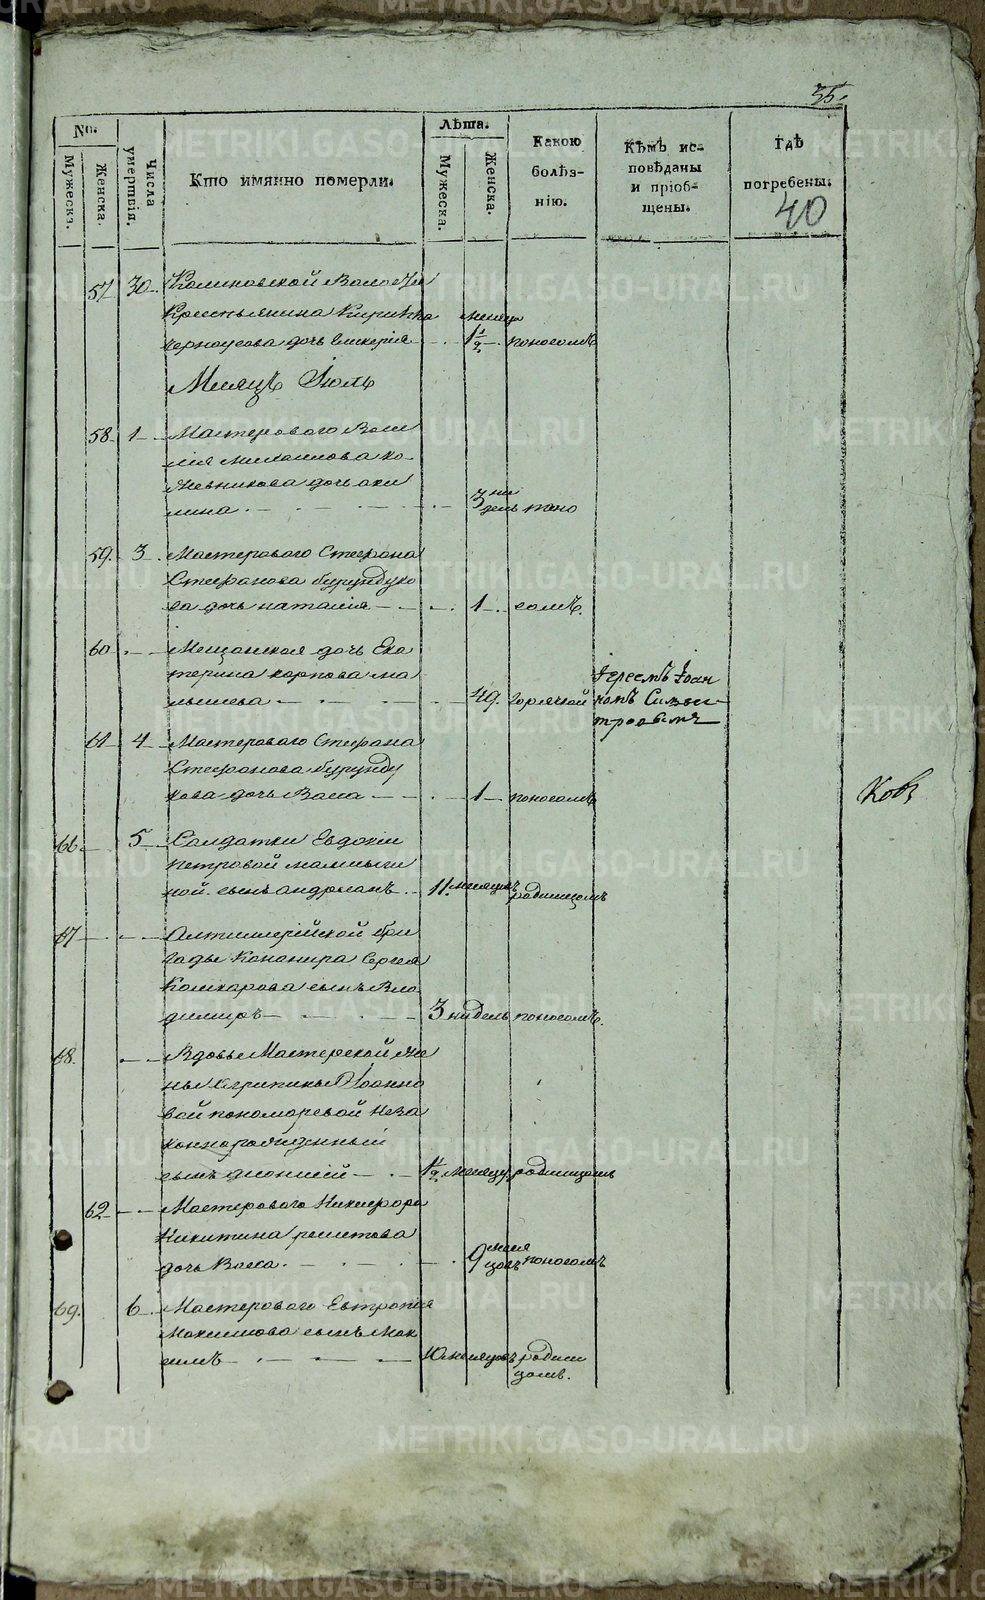 35.
№.
Мужеска.
Женска.
Числа умертвія.
Кто имянно померли.
Лѣта.
Мужеска.
Женска.
Какою
болѣз-
нію.
Кѣмъ ис-
повѣданы
и пріоб-
щены.
Гдѣ
погребены.
40
57 30 Калиновской Волости
Крестьянина Кирилла месяца
черноусова дочь Гликерія 1 1/2 поносомъ
Месяцъ Іюль
58 1 Мастероваго Васи
лія Михаилова ко
жевникова дочь аки
лина 3 не
дель поно
59 3 Мастероваго Стефана
Стефанова бурундуко
ва дочь наталія 1 сомъ.
60 Мещанская дочь Ека
терина карпова ма
лышева 49. горячкой
Іереемъ Іоан
номъ
61 4 Мастероваго Стефана
Стефанова бурунду
кова дочь Васса 1 поносомъ
Ков
66 5 Солдатки Евдокіи
Петровой
ной сынъ андреанъ 11. месяцовъ родимцомъ
67 Артиллерійской бри
гады Канонира Сергея
Кошкарова сынъ Вла
димиръ 3 нидель поносомъ.
68. Вдовы Мастерской же
ны Агрипины Іоанно
вой пономаревой неза
коннарожденный
сынъ дионисій 1 1/2 месяцу родимцомъ
62 Мастероваго Никифора
Никитина решетова
дочь Васса. 9 меся
цовъ поносомъ
69. 6 Мастероваго Евтропія
Максимова сынъ Мак
симъ 10 месяцовъ родим
цомъ.
METRIKI.GASO-URAL.RU